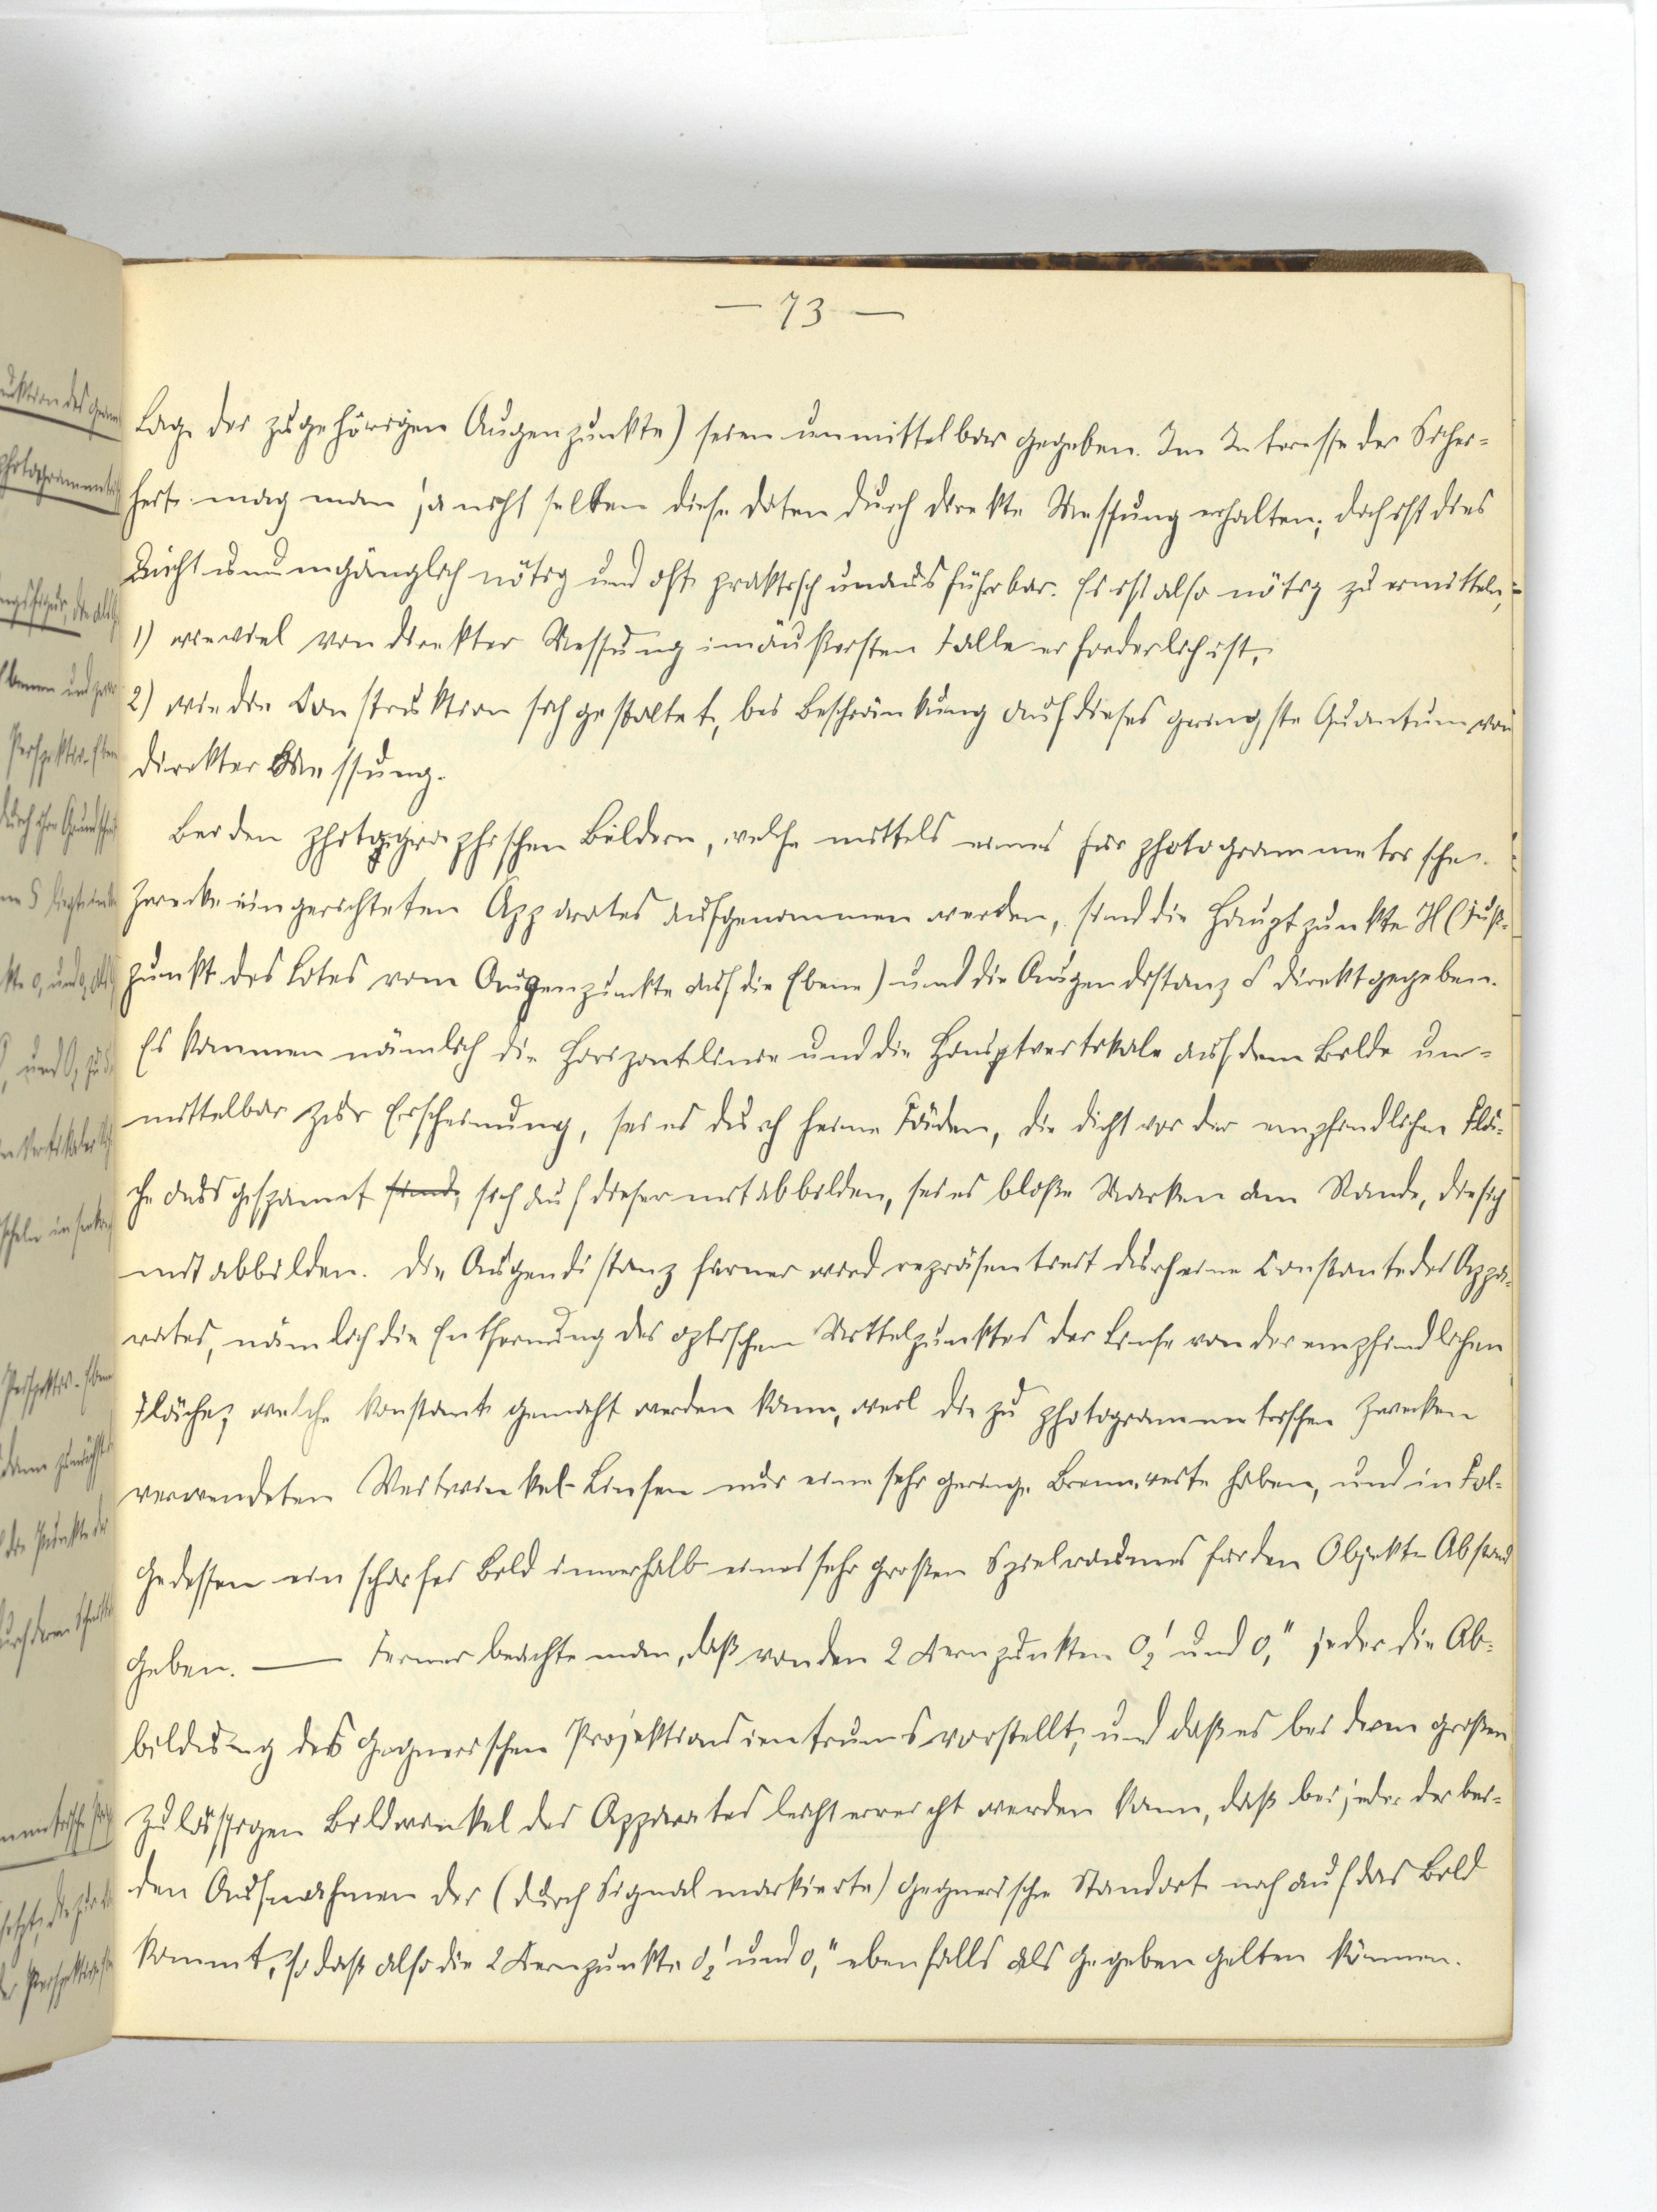 — 73 —
Lage der zugehörigen Augenpunkte) seien unmittelbar gegeben. Im Interesse der Sicher-
heit mag man ja nicht selten diese Daten durch direkte Messung erhalten; doch ist dies
nicht unumgänglich nötig und oft praktisch unausführbar. Es ist also nötig zu ermitteln,
1) wieviel von direkter Messung im äußersten Falle erforderlich ist,
2) wie die Construktion sich gestaltet, bei Beschränkung auf dieses geringste Quantum von
direkter Messung.
Bei den photographischen Bildern, welche mittels eines für photogrammetrische
Zwecke eingerichteten Apparates aufgenommen werden, sind die Hauptpunkte H (Fuß-
punkt des Lotes vom Augenpunkte auf die Ebene) und die Augendistanz δ direkt gegeben.
Es kommen nämlich die Horizontlinie und die Hauptvertikale auf dem Bilde un-
mittelbar zur Erscheinung, sei es durch feine Fäden, die dicht vor der empfindlichen Flä-
che ausgespannt sind, sich auf dieser mit abbilden, sei es bloße Marken am Rande, die sich
mit abbilden. Die Augendistanz ferner wird repräsentiert durch eine Constante des Appa-
rates, nämlich die Entfernung des optischen Mittelpunktes der Linse von der empfindlichen
Fläche, welche konstant gemacht werden kann, weil die zu photogrammetrischen Zwecken
verwendeten Weitwinkel-Linsen nur eine sehr geringe Brennweite haben, und in Fol-
gedessen ein scharfes Bild innerhalb eines sehr großen Spielraumes für den Objekt-Abstand
geben. — Ferner beachte man, daß von den 2 Kernpunkten O₂' und O₁" jeder die Ab-
bildung des gegnerischen Projektionscentrums vorstellt, und daß es bei dem großen
zulässigen Bildwinkel des Apparates leicht erreicht werden kann, daß bei jeder der bei-
den Aufnahmen der (durch Signal markierte) gegnerische Standort noch auf das Bild
kommt, so daß also die 2 Kernpunkte O₂' und O₁" ebenfalls als gegeben gelten können.